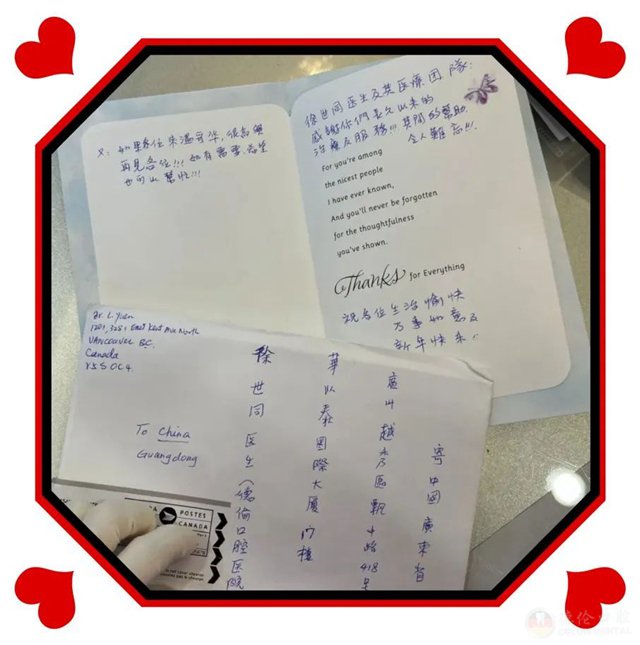 又：如果各位來溫哥华，很高興
再見各位!!! 如有需要,希望
也可以幫忙!!!
徐世同医生及其医療团隊：
感謝你們長久以來的
治療及服務!!! 其間的幫助
令人難忘!!!
For you're among
the nicest people
I have ever known,
And you'll never be forgotten
for the thoughtfulness
you've shown.
Thanks for Everything
祝各位生活愉快
万事如意及
新年快樂!!
Dr. L. Yuen
1201, 3281 East Kent Ave North
VANCOUVER BC.
Canada
V5S 0C4
To China
Guangdong
中國廣東省
廣州越秀區 中路418号
華以泰國際大厦 樓
徐世同医生(德倫口腔医院
POSTES
CANADA